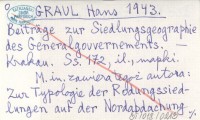 GRAUL Hans 1943.
Beiträge zur Siedlungsgeographie
des Generalgouvernements. –
Krakau. Ss. 172, il., mapki.
M. in. zawiera tegoż autora:
Zur Typologie der Rodungssied-
lungen auf der Nordabdachung